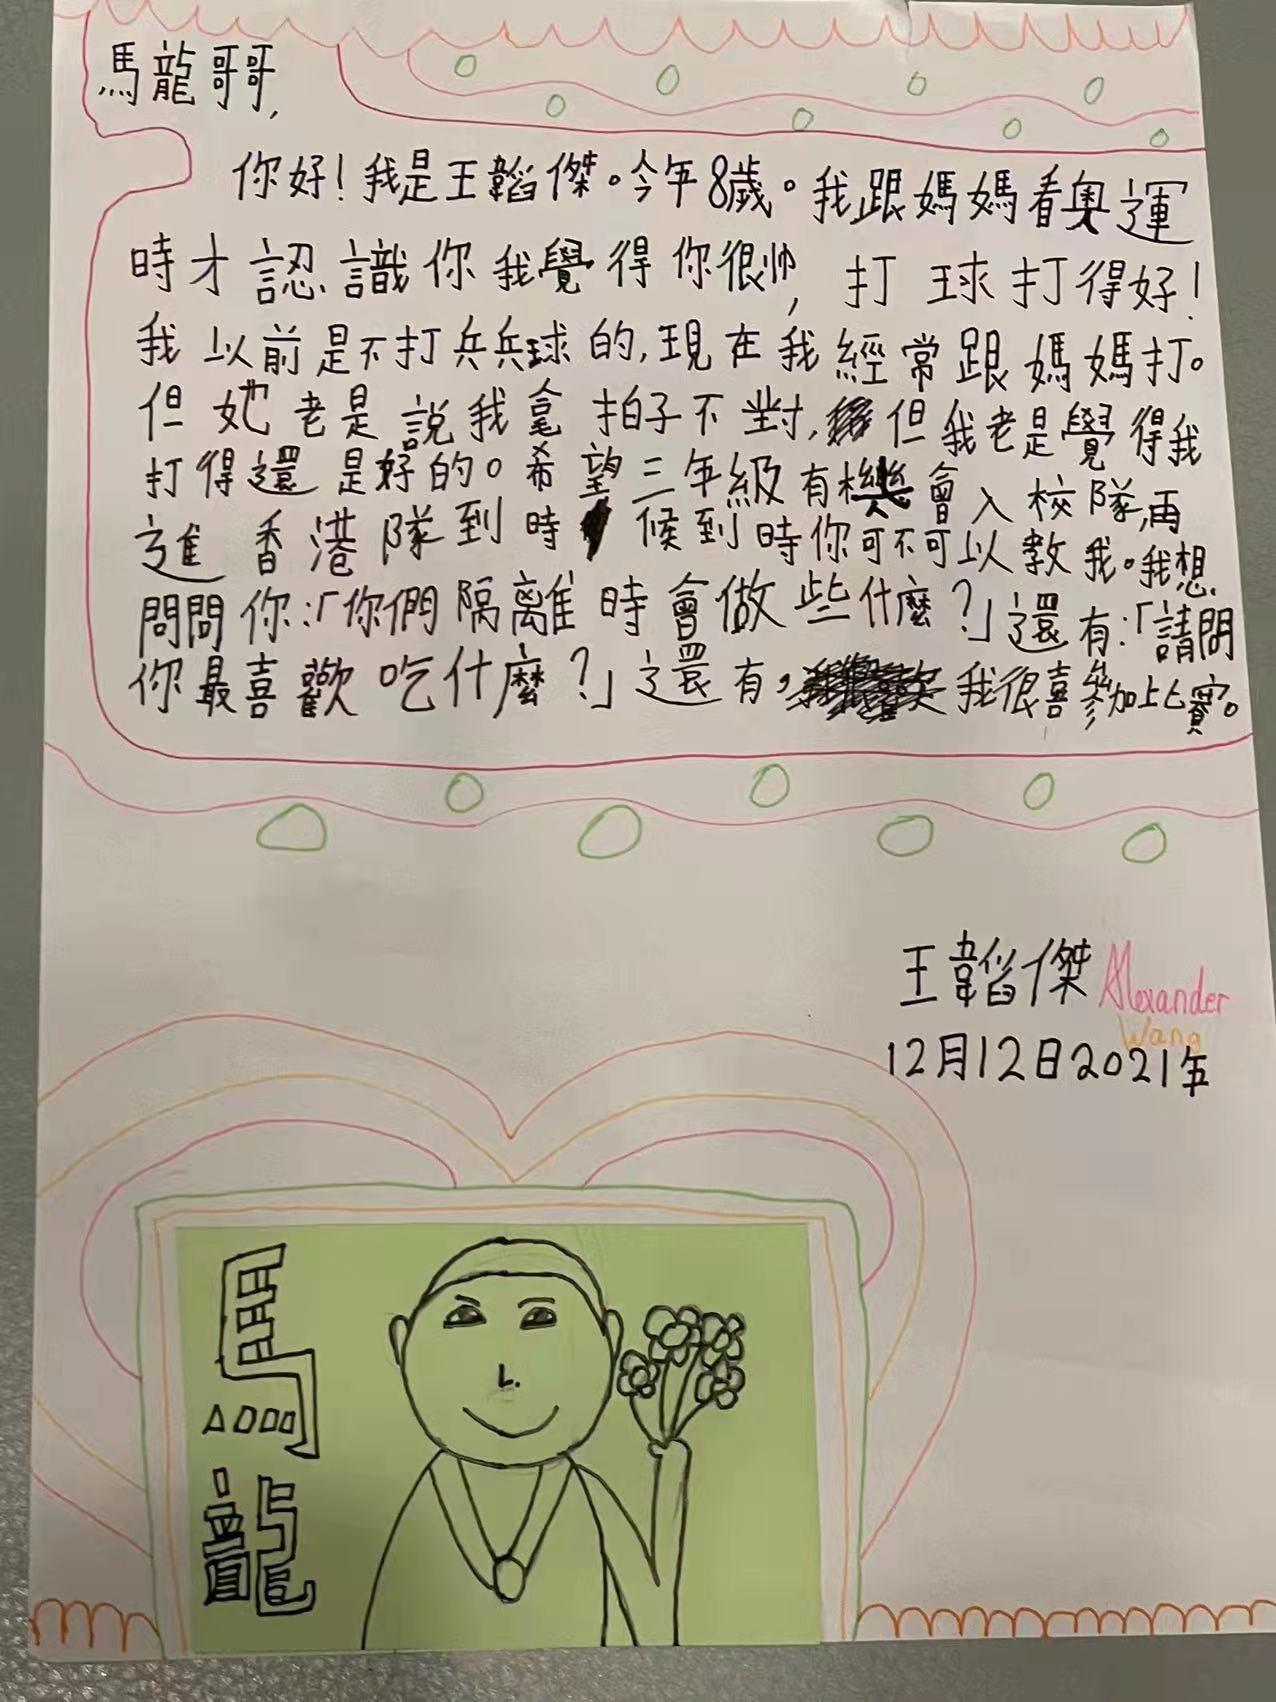 馬龍哥哥,
你好！我是王韜傑。今年8歲。我跟媽媽看奧運
時才認識你我覺得你很帅，打球打得好！
我以前是不打兵兵球的，現在我經常跟媽媽打。
但她老是說我拿拍子不對，但我老是覺得我
打得還是好的。希望三年級有機會入校隊，再
進香港隊到時候到時你可不可以教我。我想
問問你：「你們隔離時會做些什麼？」還有：「請問
你最喜歡吃什麼？」還有，我很喜參加比賽。
王韜傑 Alexander
Wang
12月12日2021年
馬
龍